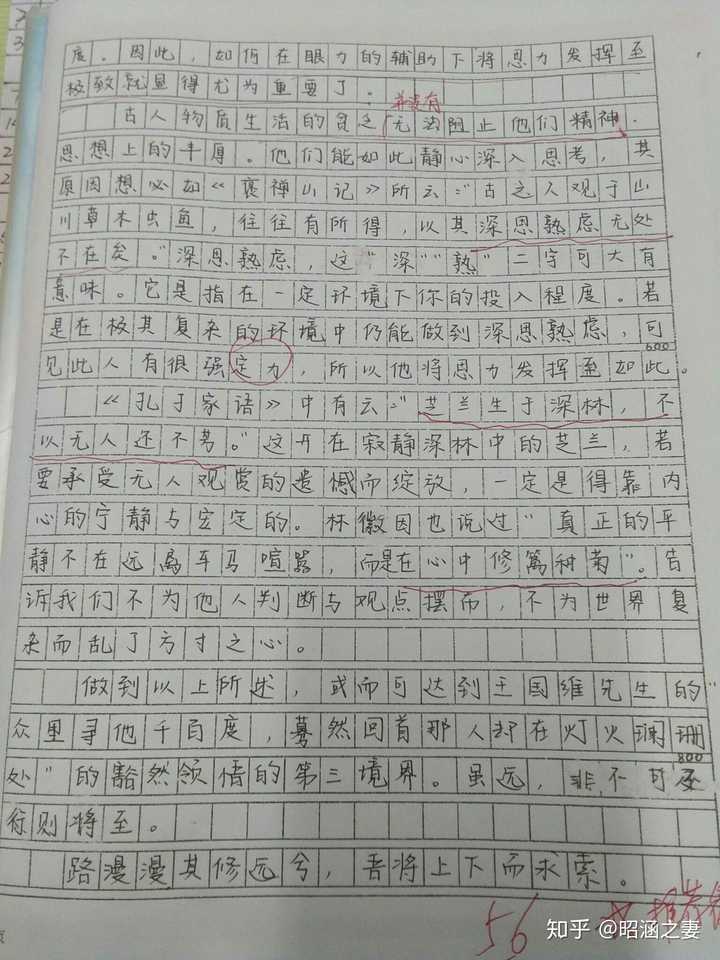 度。因此，如何在眼力的辅助下将思力发挥至
极致就显得尤为重要了。
并没有
古人物质生活的贫乏无法阻止他们精神、
思想上的丰厚。他们能如此静心深入思考，其
原因想必如《褒禅山记》所云：“古之人观于山
川草木虫鱼，往往有所得，以其深思熟虑无处
不在矣。”深思熟虑，这“深”“熟”二字可大有
意味。它是指在一定环境下你的投入程度。若
是在极其复杂的环境中仍能做到深思熟虑，可
600
见此人有很强定力，所以他将思力发挥至如此。
《孔子家语》中有云：“芝兰生于深林，不
以无人还不芳。”这开在寂静深林中的芝兰，若
要承受无人观赏的遗憾而绽放，一定是得靠内
心的宁静与宏定的。林徽因也说过“真正的平
静不在远离车马喧嚣，而是在心中修篱种菊”。告
诉我们不为他人判断与观点摆而，不为世界复
杂而乱了方寸之心。
做到以上所述，或而可达到王国维先生的“
众里寻他千百度，蓦然回首那人却在灯火阑珊
800
处”的豁然领悟的第三境界。虽远，非不可及
行则将至。
路漫漫其修远兮，吾将上下而求索。
56
知乎 @昭涵之妻